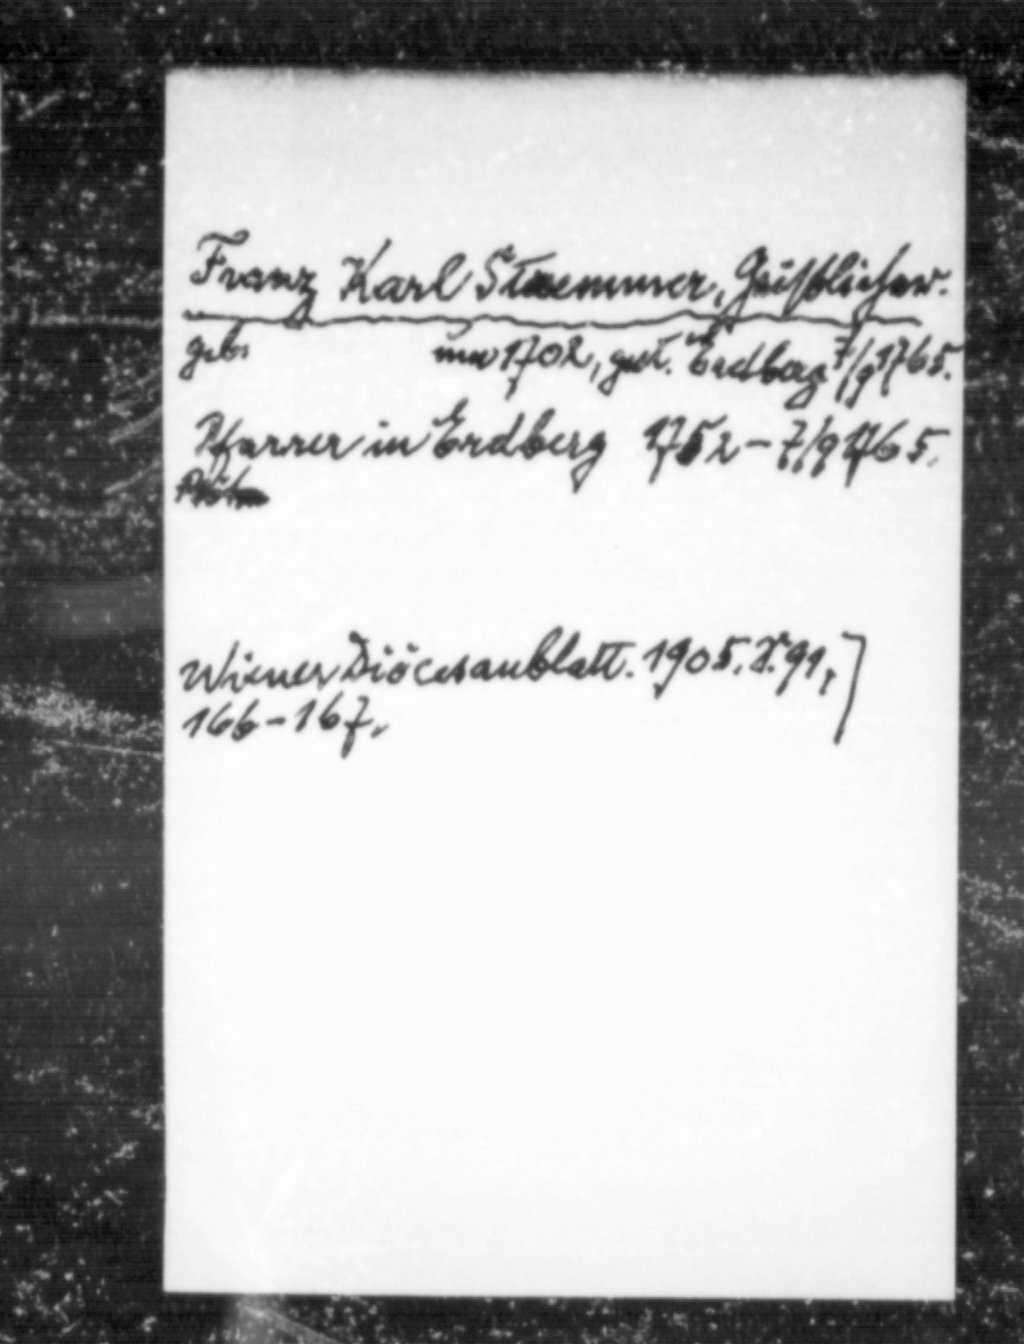 Franz Karl Straemmer, Geistlicher.
geb. um 1702, gest. Erdberg 7/9 1765.
Pfarrer in Erdberg 1752 - 7/9 1765.
Wiener Diöcesanblatt. 1905. S. 91,
166-167.